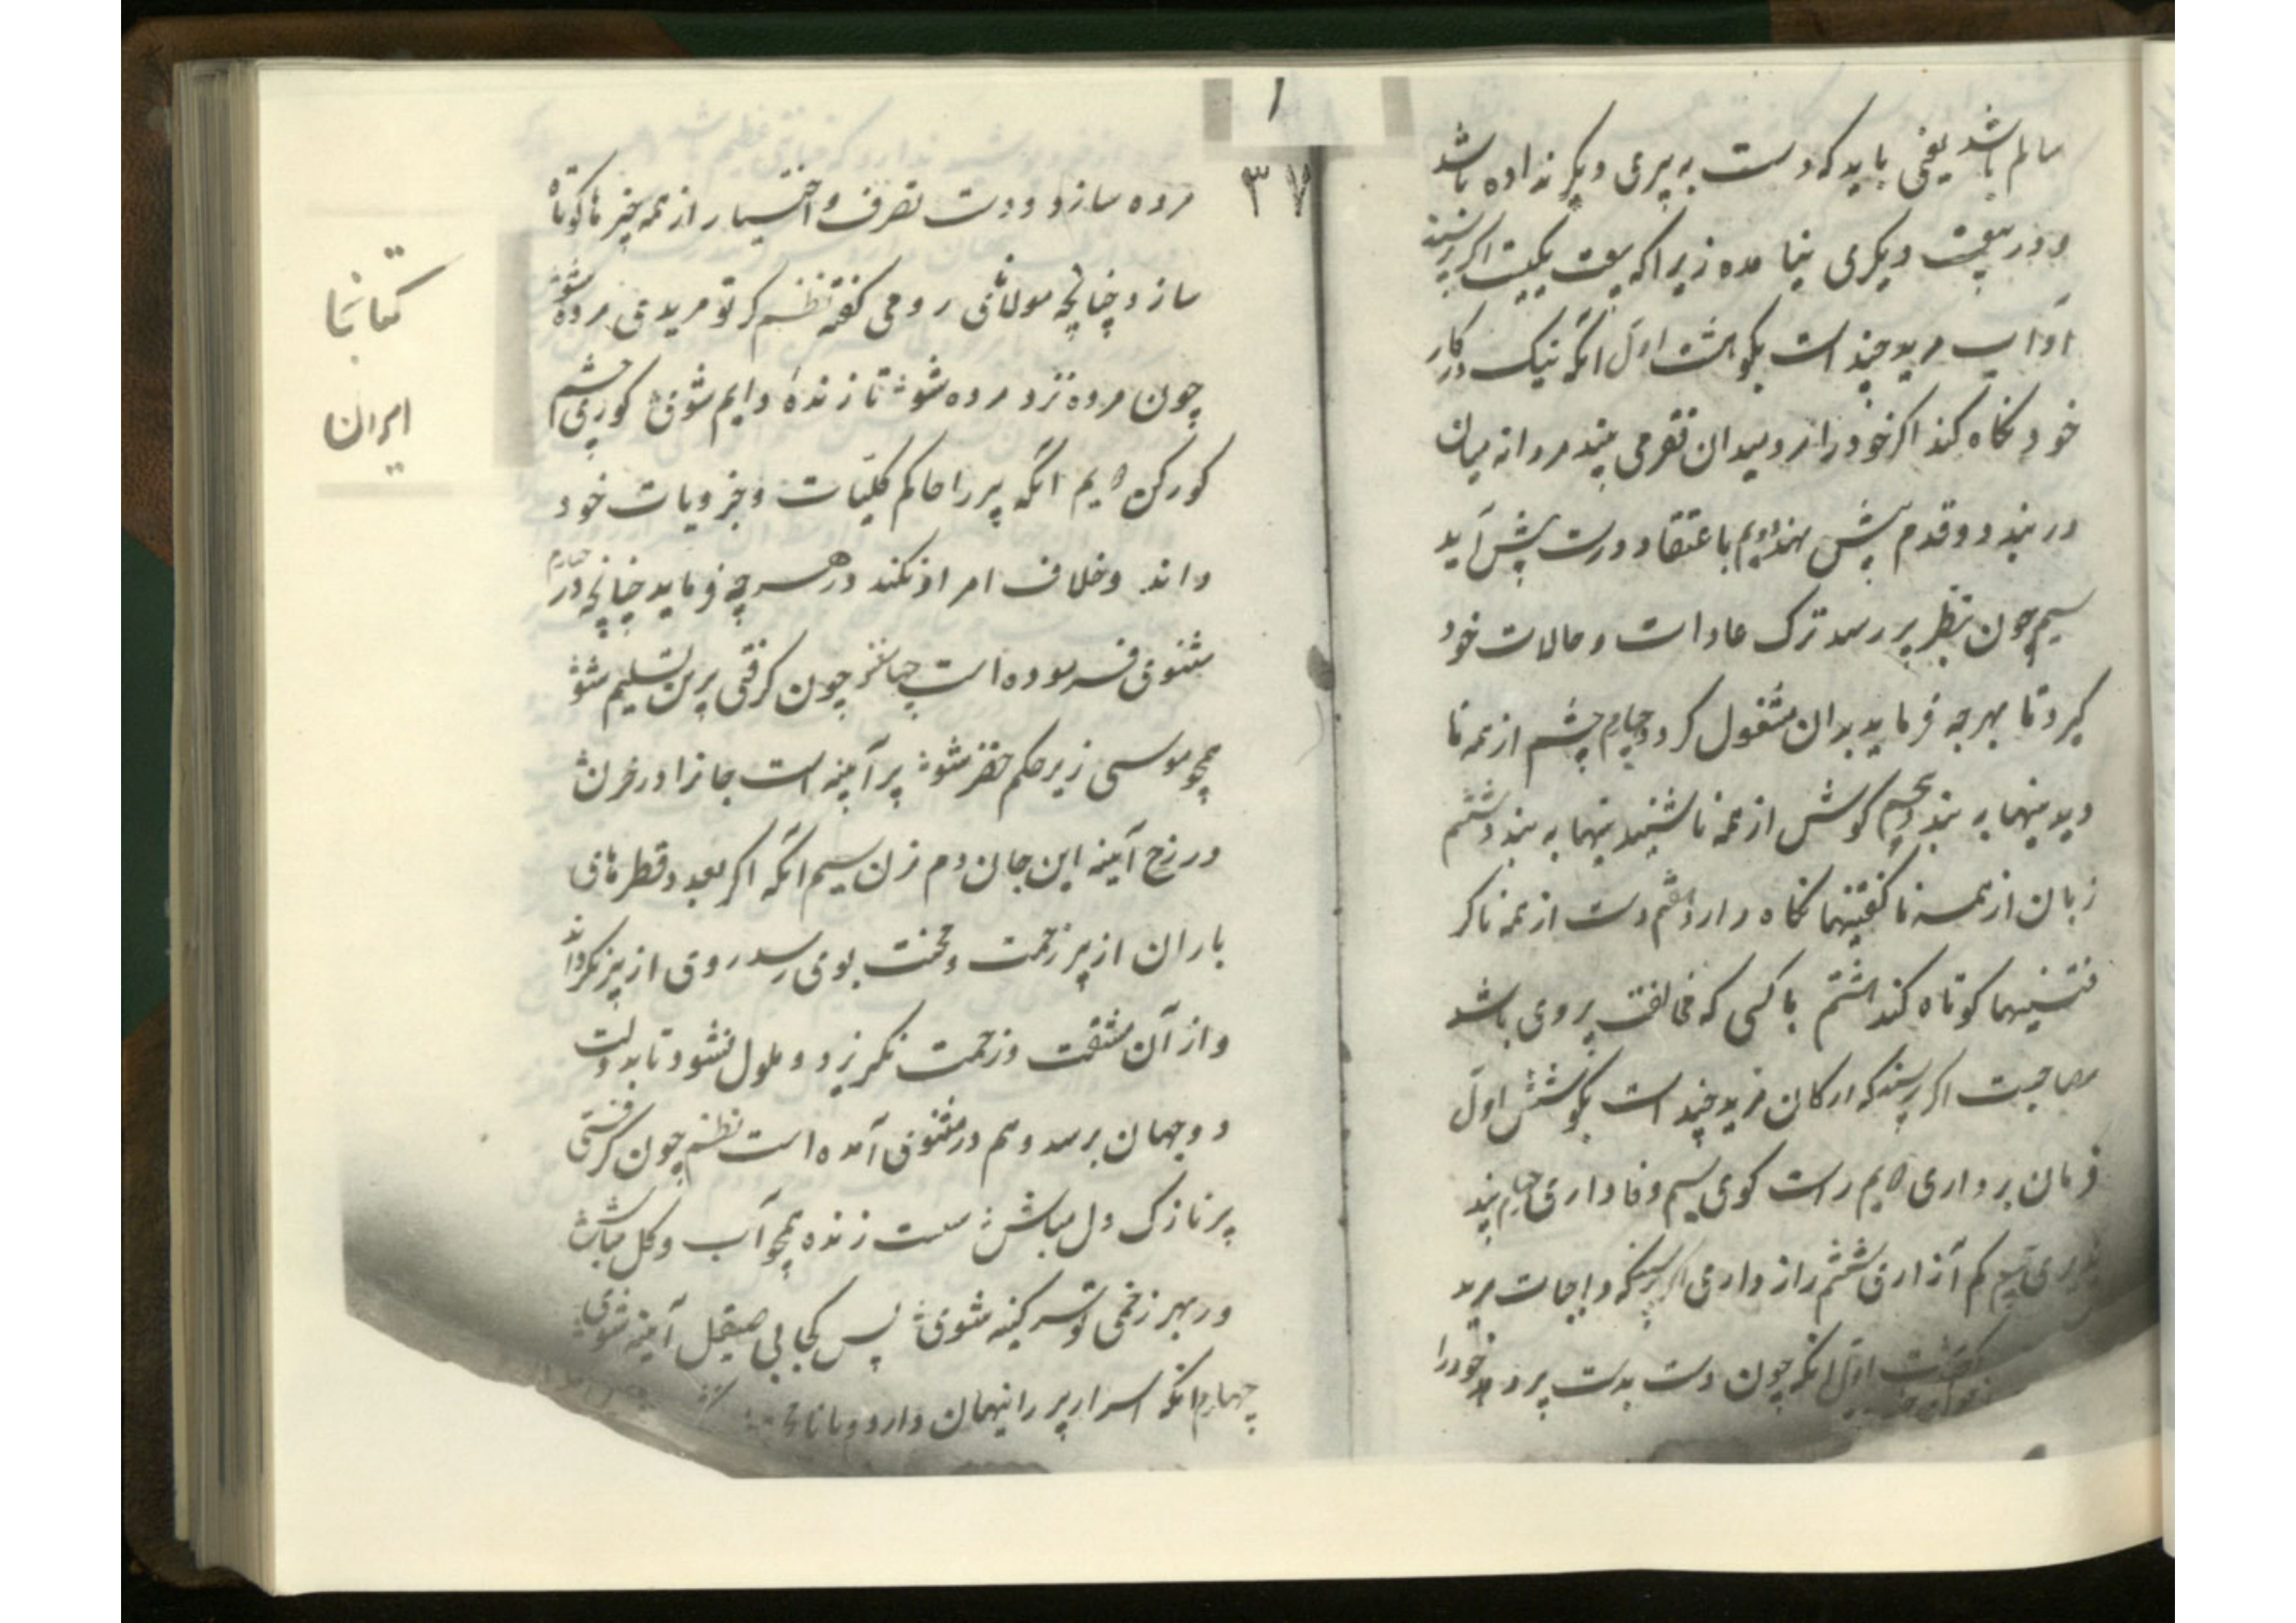 سالم باشد یعنی باید که دست به پیری دیگر نداده باشد
و در بیعت دیگری نیامده زیرا که بیعت یکیست اگر پرسند
آداب مرید چند است بگو هشت اول انکه نیک در کار
خود نکاه کند اکر خود را مرد میدان فقر می بیند مردانه میان
در بندد و قدم پیش نهد دویم باعتقاد درست پیش آید
سیم چون بنظر پیر رسد ترک عادات و حالات خود
کیرد تا بهرچه فرماید بدان مشغول کردد چهارم چشم از همه نا
دیدنیها به بندد پنجم کوش از همه ناشنیدنیها به بندد ششم
زبان از همه ناکفتنیها نکاه دارد هفتم دست از همه ناکر
فتنیها کوتاه کند هشتم با کسی که مخالف پیر وی باشد
مصاحبت اکر پرسند که ارکان مرید چند است بکو شش اول
فرمان برداری دویم راست کوی سیم وفاداری چهارم پند
پذیری پنجم کم آزاری ششم رازداری اکر پرسند که واجبات مرید
اول انکه چون دست بدست پیر دهد خود را
۱
۳۷
مرده سازد و دست تصرف و اختیار از همه چیزها کوتاه
سازد چنانچه مولانای رومی کفته نظم کر تو مریدی مرده شو
چون مرده نزد مرده شو تا زنده دایم شوی کوری چشم
کور کن دویم انکه پیر را حاکم کلیات و جزویات خود
داند و خلاف امر او نکند در هر چه فرماید چنانچه در
مثنوی فرموده است چون کرفتی پیر هن تسلیم شو
همچو موسی زیر حکم خضر شو پیر آینه است جانرا در حزن
در رخ آینه این جان دم مزن سیم انکه اکر بعدد قطرهای
باران از پیر زحمت و محنت بوی رسد روی از پیر نکرداند
و از آن مشقت و زحمت نکریزد و ملول نشود تا بدولت
دو جهان برسد و هم در مثنوی آمده است نظم چون کرفتی
پیر نازک دل مباش سست زنده همچو آب و کل مباش
ور بهر زخمی تو پر کینه شوی پس کجا بی صیقل آینه شوی
چهارم انکه اسرار پیر را پنهان دارد و با
کتابخا
ایران